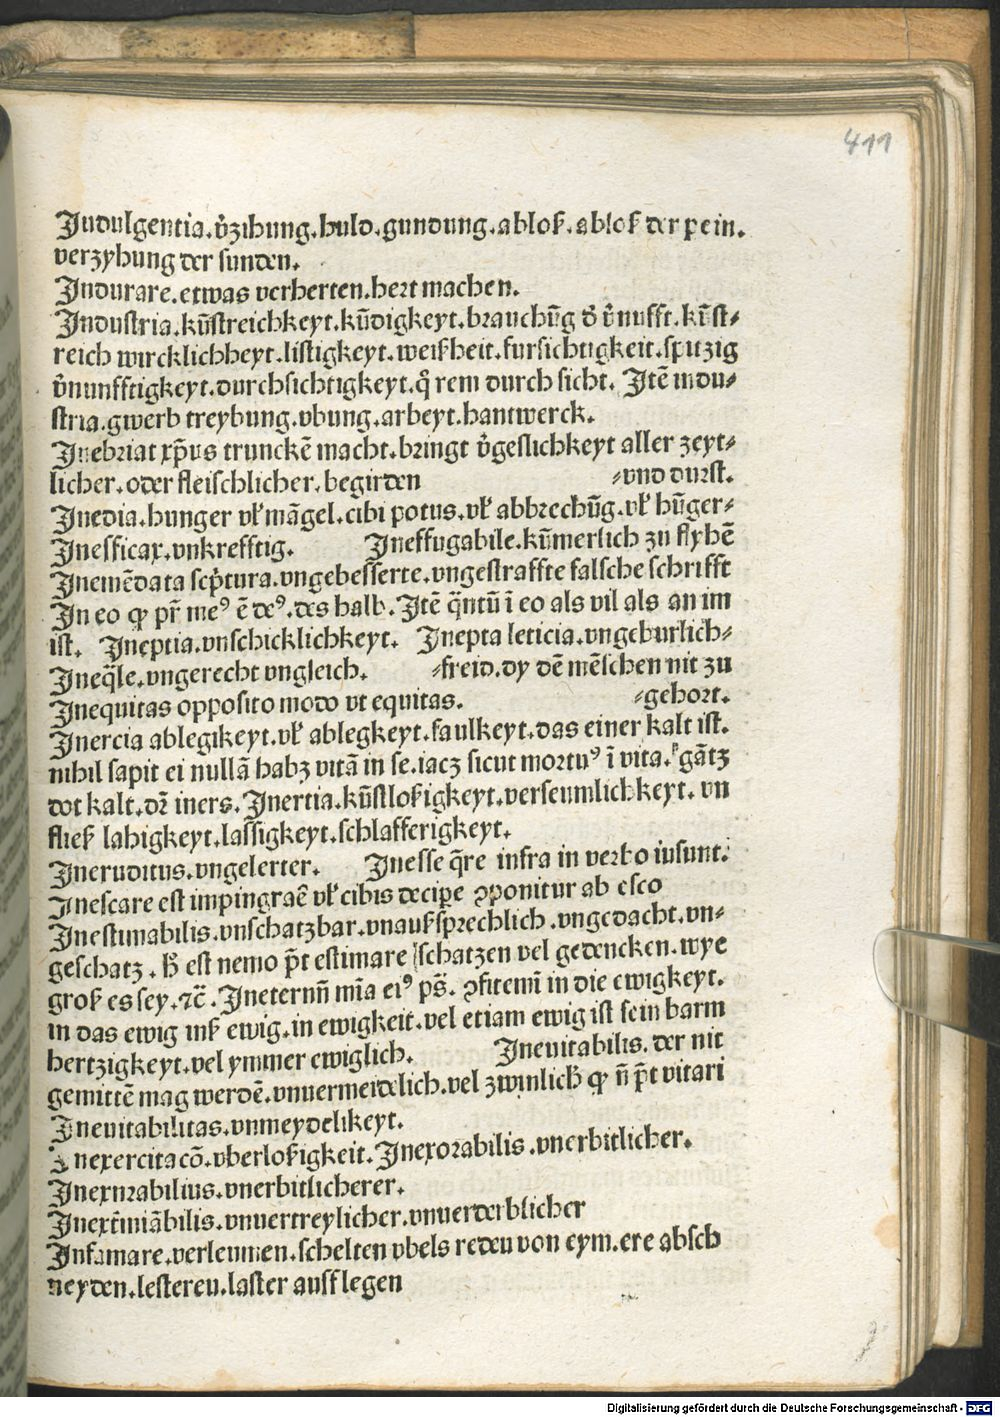 411
Indulgentia.v̓zihung.huld.gundung.abloß.abloß der pein.
verzyhung der sunden.
Indurare.etwas verherten.hert machen.
Industria.kūstreichkeyt.kūdigkeyt.brauchūg d̓ v̓nufft.kūst⸗
reich wircklichheyt.listigkeyt.weißheit.fursichtigkeit.spitzig
v̓nunfftigkeyt.durchsichtigkeyt.q̓ rem durch sicht. Itē indu⸗
stria.gwerb treybung.vbung.arbeyt.hantwerck.
Inebriat xp̄us trunckē macht.bringt v̓geslichkeyt aller zeyt⸗
licher.oder fleischlicher.begirden ⸗vnd durst.
Inedia.hunger vl̓ māgel.cibi potus.vl̓ abbrechūg.vl̓ hūger⸗
Inefficax.vnkrefftig. Ineffugabile.kūmerlich zu flyhē
Inemēdata scp̄tura.vngebesserte.vngestraffte falsche schrifft
In eo ꝙ pr̄ meꝰ ē deꝰ.des halb.Itē q̄ntū ī eo als vil als an im
ist. Ineptia.vnschicklichkeyt. Inepta leticia.vngeburlich⸗
Ineq̄le.vngerecht vngleich. ⸗freid.dy dē mēschen nit zu
Inequitas opposito modo vt equitas. ⸗gehort.
Inercia ablegikeyt.vl̓ ablegkeyt.faulkeyt.das einer kalt ist.
nihil sapit ei nullā habz vitā in se.iacz sicut mortuꝰ ī vita. gātz
dot kalt.dr̄ iners.Inertia.kūstloßigkeyt.verseumlichkeyt.vn
fließ lahigkeyt.lassigkeyt.schlafferigkeyt.
Ineruditus.vngelerter. Inesse q̄re infra in verbo insunt.
Inescare est impingraē vl̓ cibis decipe ꝓponitur ab esco
Inestimabilis.vnschatzbar.vnaußsprechlich.vngedacht.vn⸗
geschatz. est nemo p̄t estimare schatzen vel gedencken.wye
groß es sey.⁊c̄. Ineternū mīa eiꝰ ps̄. ꝯfitemī in die ewigkeyt.
in das ewig inß ewig.in ewigkeit.vel etiam ewig ist sein barm
hertzigkeyt.vel ymmer ewiglich. Ineuitabilis.der nit
gemittē mag werdē.vnuermeidelich.vel zwinlich ꝙ n̄ p̄t vitari
Ineuitabilitas.vnmeydelikeyt.
Inexercitacō.vberloßigkeit.Inexorabilis.vnerbitlicher.
Inexorabilius.vnerbitlicherer.
Inext̄miābilis.vnuertreylicher.vnuerderblicher
Infamare.verleumen.schelten vbels reden von eym.ere absch
neyden.lesteren.laster aufflegen
Digitalisierung gefördert durch die Deutsche Forschungsgemeinschaft - DFG